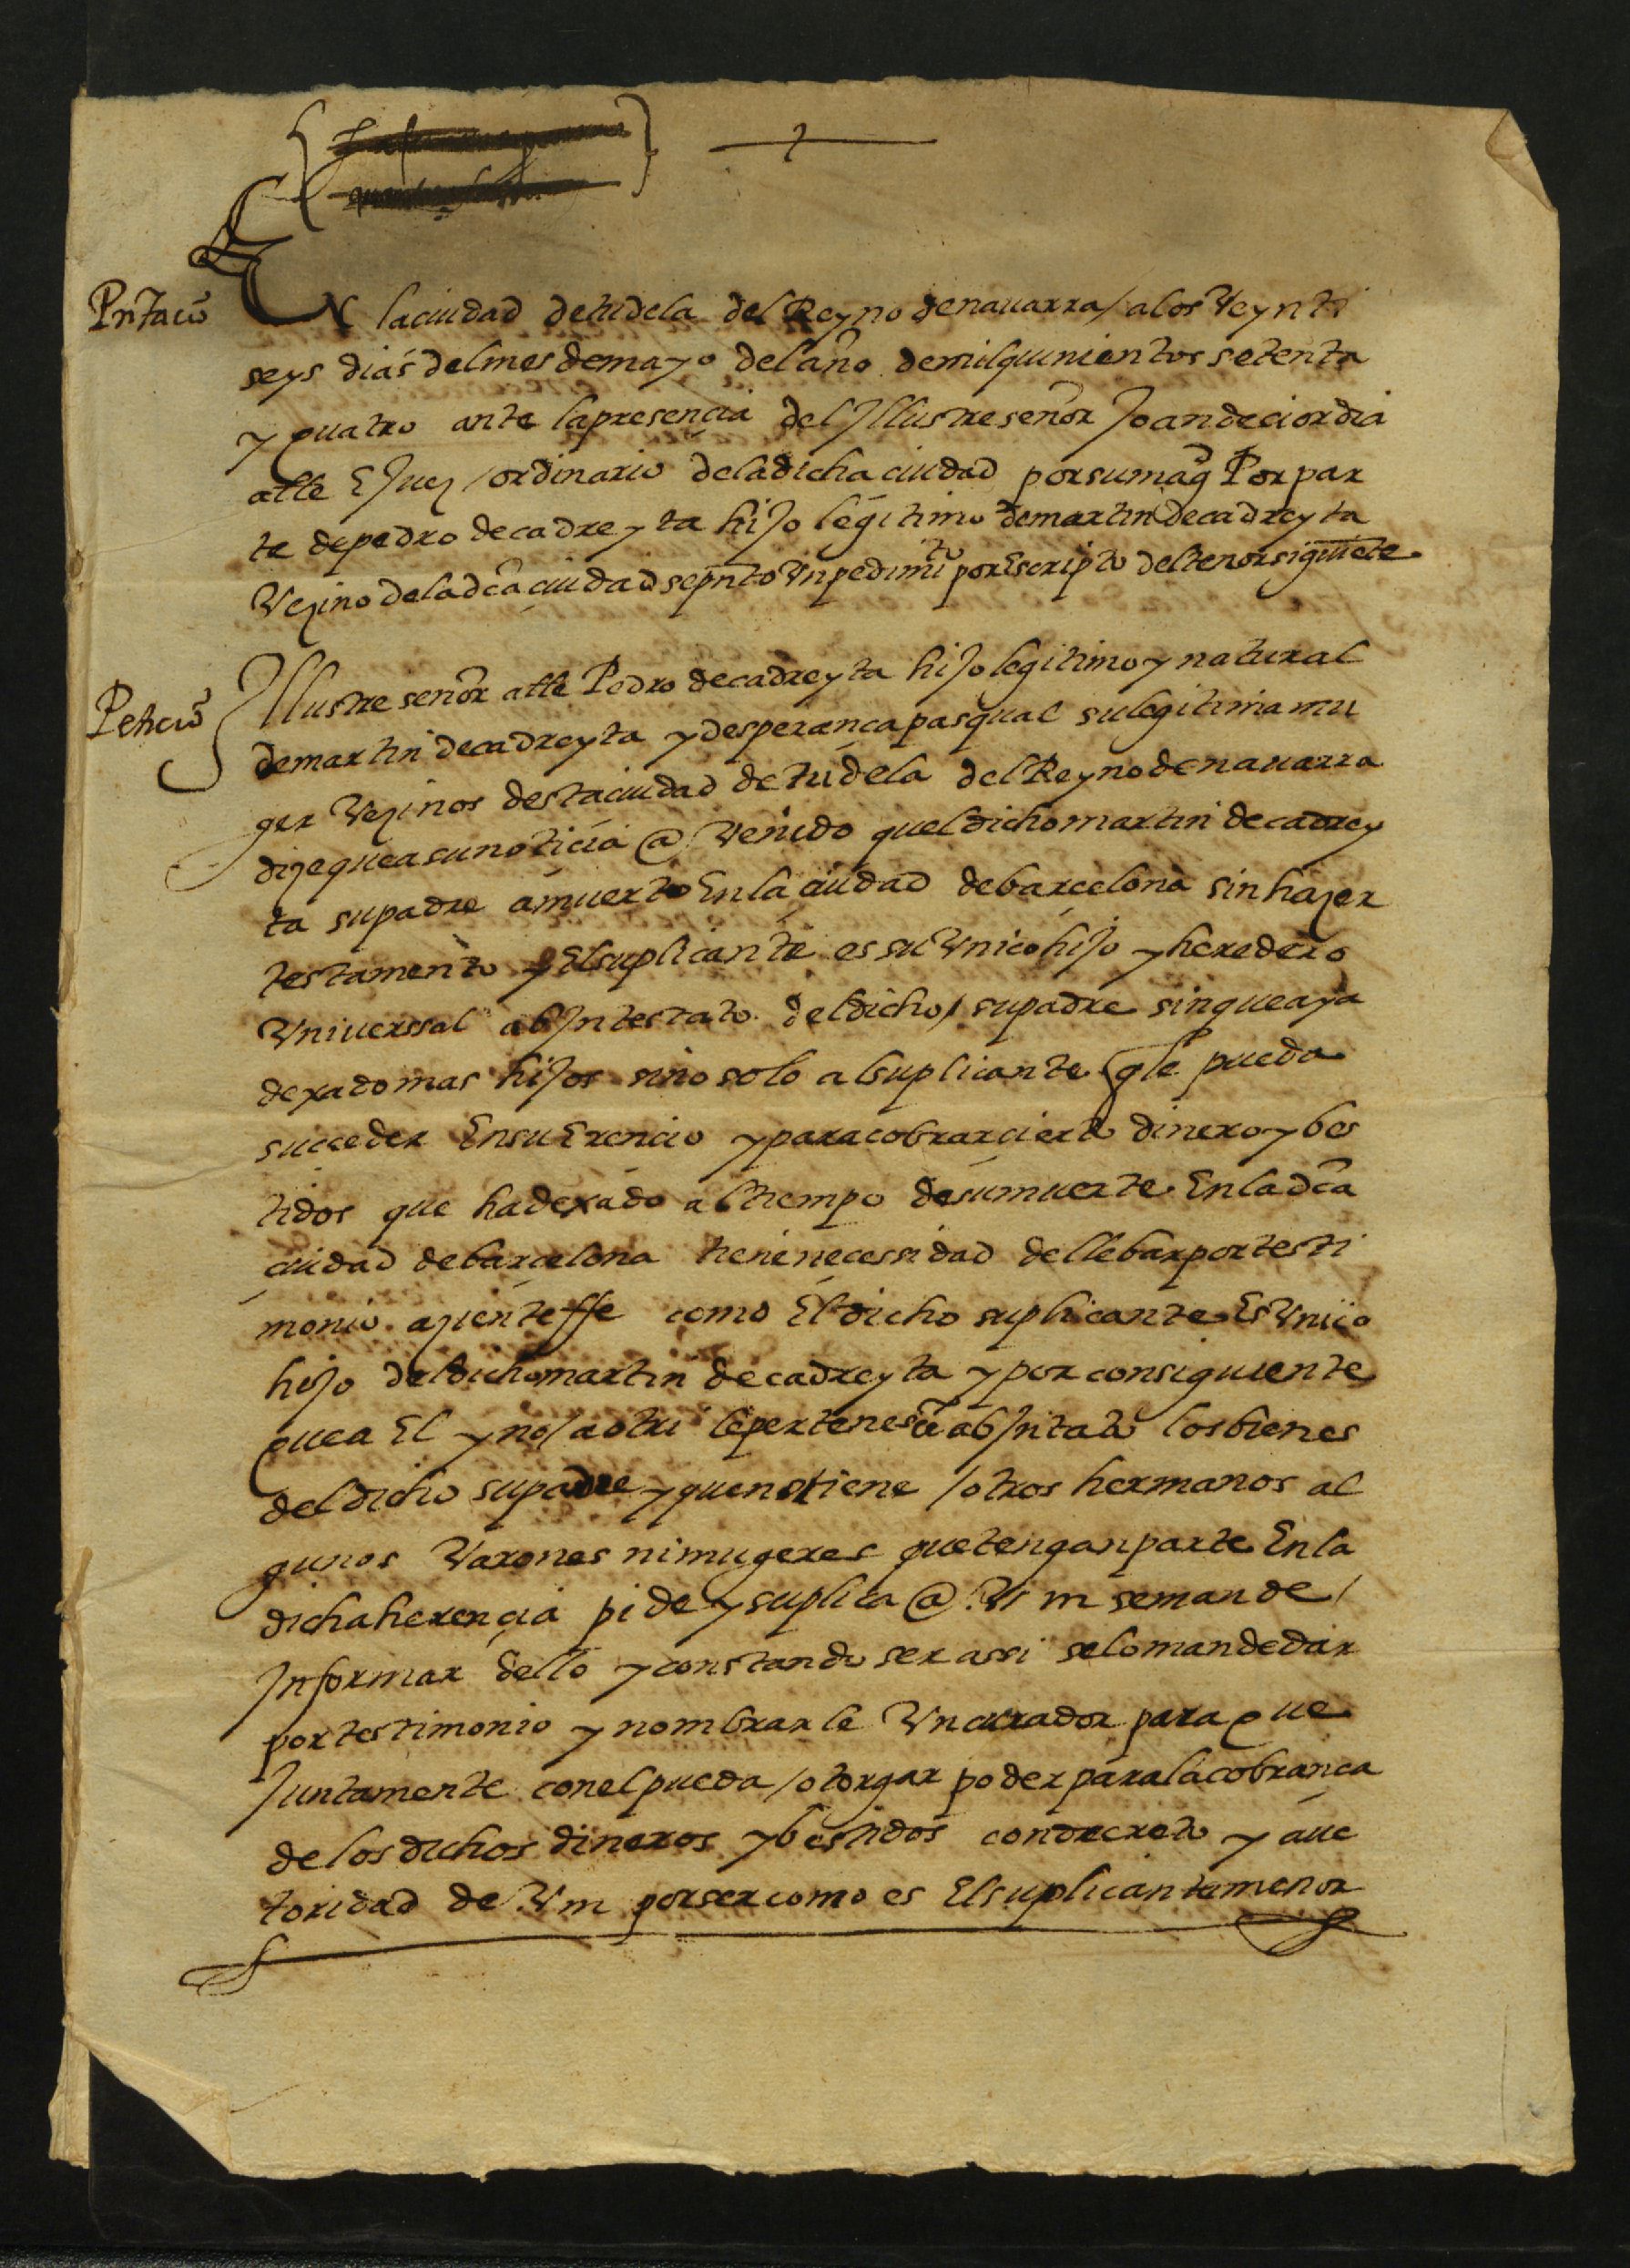 Pñtaçio
En la ciudad de tudela del Reyno de nauarra / a los Veynti
seys dias del mes de mayo del año de mil quinientos setenta
y quatro ante la presençia del Jllustre señor Joan de ciordia
alle E Juez / ordinario de la dicha ciudad por su magd Por par
te de pedro de cadreyta hiJo legitimo de martin de cadreyta
Vezino de la dcha ciudad se pñto Vn pedimito por Escripto del tenor siguiete
Petiçio
Jllustre señor alle Pedro de cadreyta hiJo legitimo y natural
de martin de cadreyta y desperança pasqual su legitima mu
ger Vezinos desta ciudad de tudela del Reyno de nauarra
dize que a su notiçia @ Venido quel dicho martin de cadrey
ta su padre a muerto En la çiudad de barçelona sin hazer
testamento y El suplicante es su Vnico hiJo y heredero
Vniuerssal ab Jntestato del dicho / su padre sin que aya
dexado mas hiJos sino solo al suplicante q le pueda
succeder En su Erencio y para cobrar cierto dinero y bes
tidos que ha dexado al tiempo de su muerte En la dcha
çiudad de barçelona tiene necessidad de llebar por testi
monio aziente ffe como El dicho suplicante Es Vnico
hiJo del dicho martin de cadreyta y por consiguiente
que a El y no / a otri le pertenesce ab Jntato los bienes
del dicho su padre y que no tiene / otros hermanos al
gunos Varones ni mugeres que tengan parte En la
dicha herençia pide y suplica @ V m se mande /
Jnformar dello y constando ser assi se lo mande dar
por testimonio y nombrarle Vn curador para que
Juntamente con el pueda / otorgar poder para la cobrança
de los dichos dineros y bestidos con decreto y auc
toridad de V m por ser como es El suplicante menor